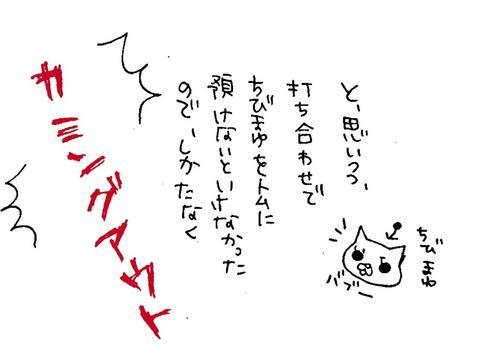 と、思いつつ、
打ち合わせで
ちびまゆをトムに
預けないといけなかった
ので、しかたなく
カミングアウト
ちびまゆ
バブー